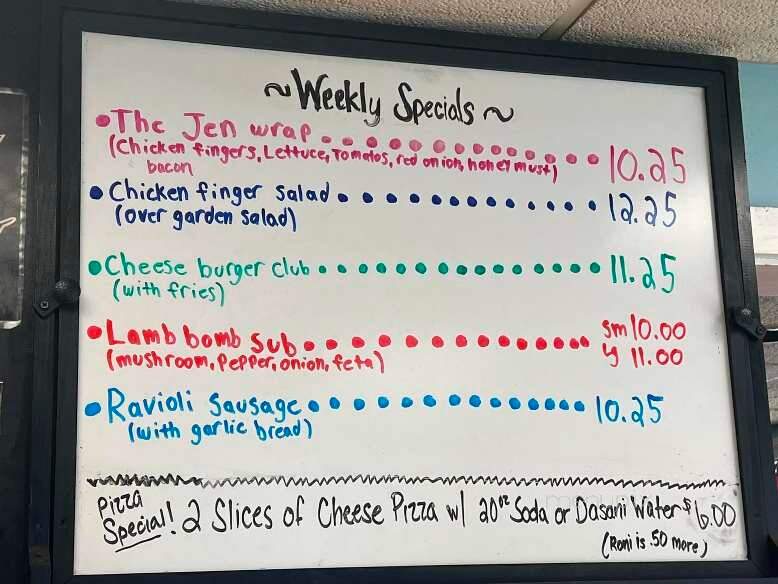 ~ Weekly Specials ~
• The Jen wrap 10.25
(Chicken fingers, Lettuce, Tomatos, red onion, honey must)
bacon
• Chicken finger salad 12.25
(over garden salad)
• Cheese burger club 11.25
(with fries)
• Lamb bomb sub sm 10.00
(mushroom, pepper, onion, feta) 11.00
• Ravioli Sausage 10.25
(with garlic bread)
Pizza
Special! 2 Slices of Cheese Pizza w/ 20oz Soda or Dasani Water $6.00
(Roni is .50 more)